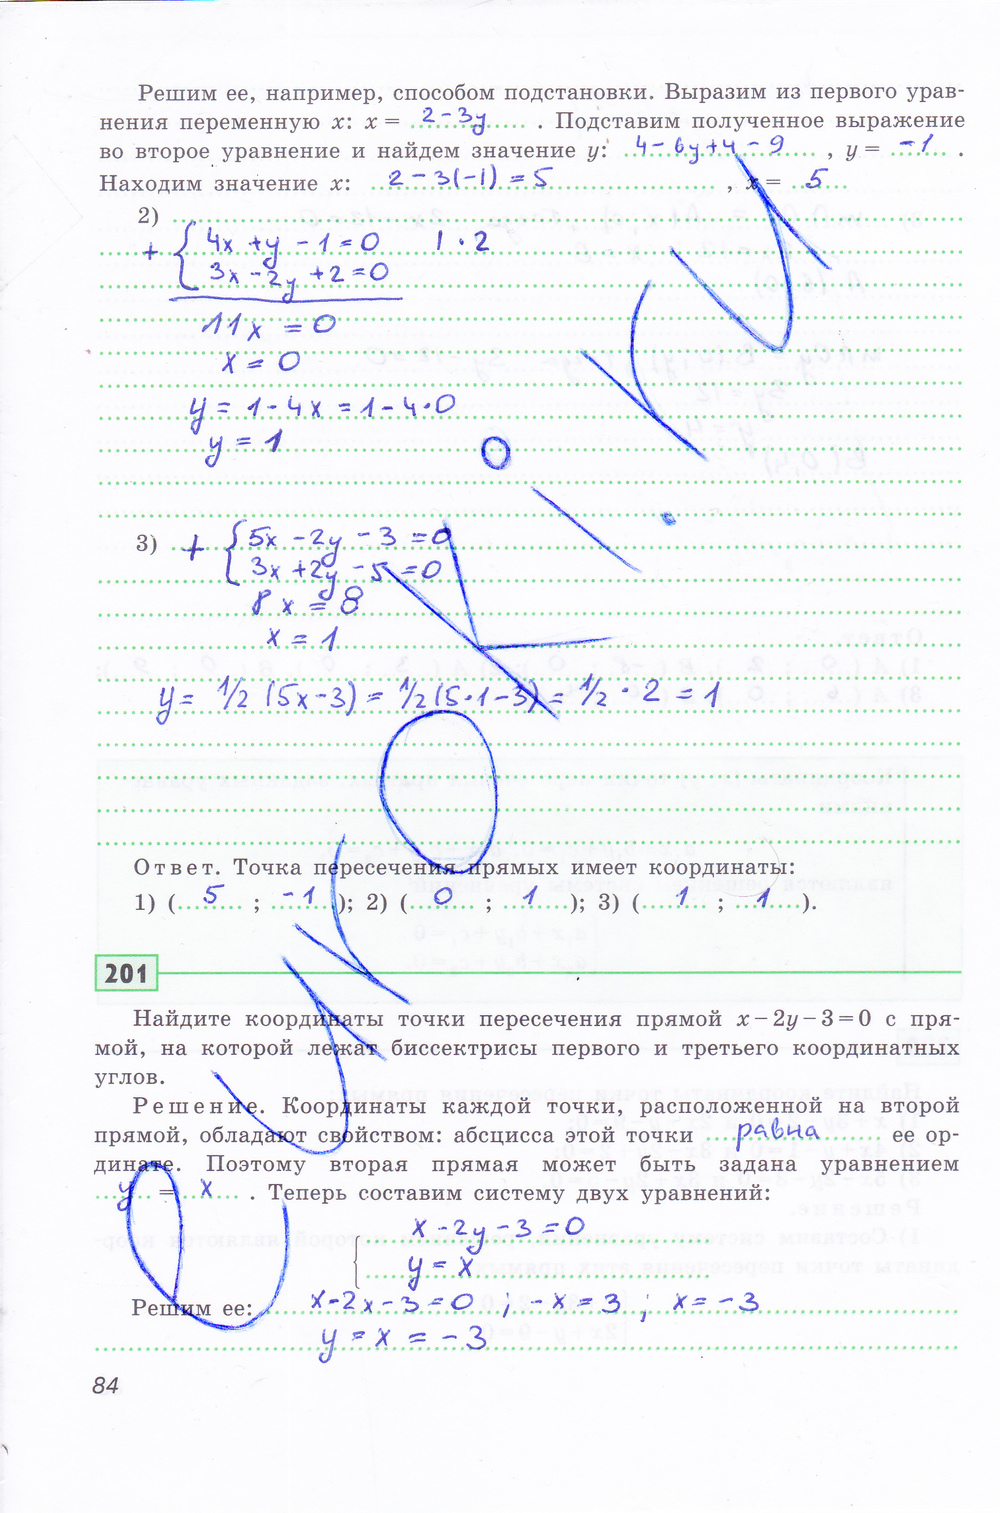 Решим ее, например, способом подстановки. Выразим из первого урав-
нения переменную x: x = 2-3y . Подставим полученное выражение
во второе уравнение и найдем значение y: 4-6y+y-9 , y = -1 .
Находим значение x: 2-3(-1)=5 , x = 5
2)
+ { 4x+y-1=0 | · 2
3x-2y+2=0
11x = 0
x = 0
y = 1-4x = 1-4·0
y = 1
3) + { 5x-2y-3=0
3x+2y-5=0
8x = 8
x = 1
y = 1/2 (5x-3) = 1/2 (5·1-3) = 1/2 · 2 = 1
Ответ. Точка пересечения прямых имеет координаты:
1) ( 5 ; -1 ); 2) ( 0 ; 1 ); 3) ( 1 ; 1 ).
201
Найдите координаты точки пересечения прямой x-2y-3=0 с пря-
мой, на которой лежат биссектрисы первого и третьего координатных
углов.
Решение. Координаты каждой точки, расположенной на второй
прямой, обладают свойством: абсцисса этой точки равна ее ор-
динате. Поэтому вторая прямая может быть задана уравнением
y = x . Теперь составим систему двух уравнений:
{ x-2y-3=0
y = x
Решим ее: x-2x-3=0 ; -x=3 ; x=-3
y = x = -3
84